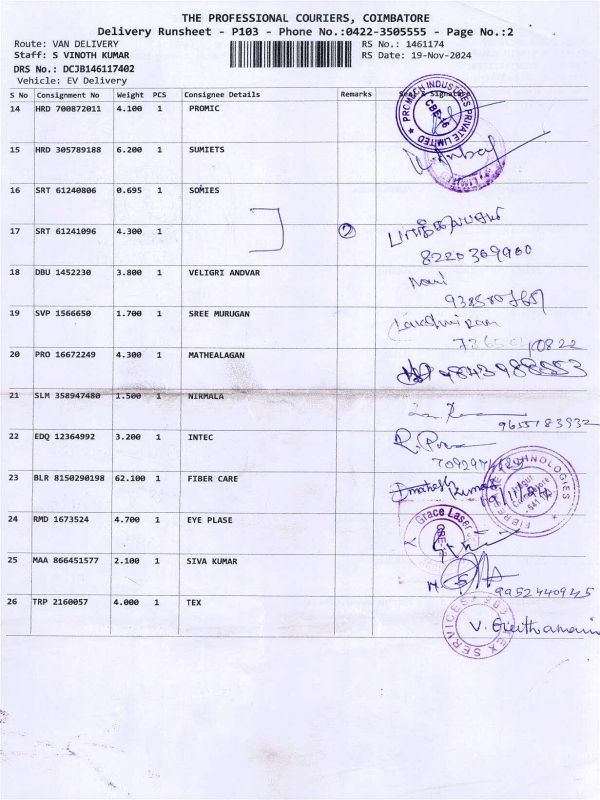 THE PROFESSIONAL COURIERS, COIMBATORE
Delivery Runsheet - P103 - Phone No.:0422-3505555 - Page No.:2
Route: VAN DELIVERY RS No.: 1461174
Staff: S VINOTH KUMAR RS Date: 19-Nov-2024
DRS No.: DCJB146117402
Vehicle: EV Delivery
S No Consignment No Weight PCS Consignee Details Remarks Signature
14 HRD 700872011 4.100 1 PROMIC
PROMECH INDUSTRIES PRIVATE LIMITED
15 HRD 305789188 6.200 1 SUMIETS
16 SRT 61240806 0.695 1 SOMIES
17 SRT 61241096 4.300 1 2
8220309900
18 DBU 1452230 3.800 1 VELIGRI ANDVAR
19 SVP 1566650 1.700 1 SREE MURUGAN
20 PRO 16672249 4.300 1 MATHEALAGAN 9843988553
21 SLM 358947480 1.500 1 NIRMALA
9655183932
22 EDQ 12364992 3.200 1 INTEC
23 BLR 8150290198 62.100 1 FIBER CARE
TECHNOLOGIES
24 RMD 1673524 4.700 1 EYE PLASE
Grace Laser
25 MAA 866451577 2.100 1 SIVA KUMAR
9952440945
26 TRP 2160057 4.000 1 TEX
SERVICES